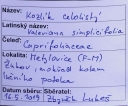 Název:
Kozlík celolistý
Latinský název:
Valeriana simplicifolia
Čeleď:
Caprifoliaceae
Lokalita: Metylovice (F-M)
Žabář, mokřad kolem
lesního potoka
Datum sběru: Sběratel:
16.5.2019 Zbyněk Lukeš